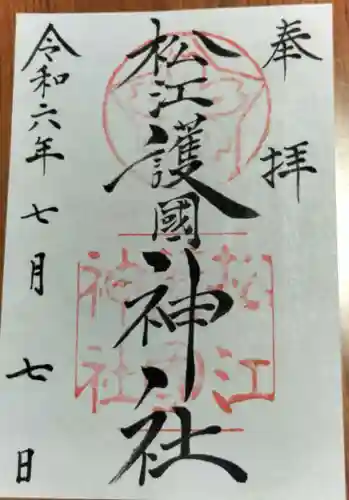 奉拝
松江護國神社
令和六年七月七日
松江
護國
神社